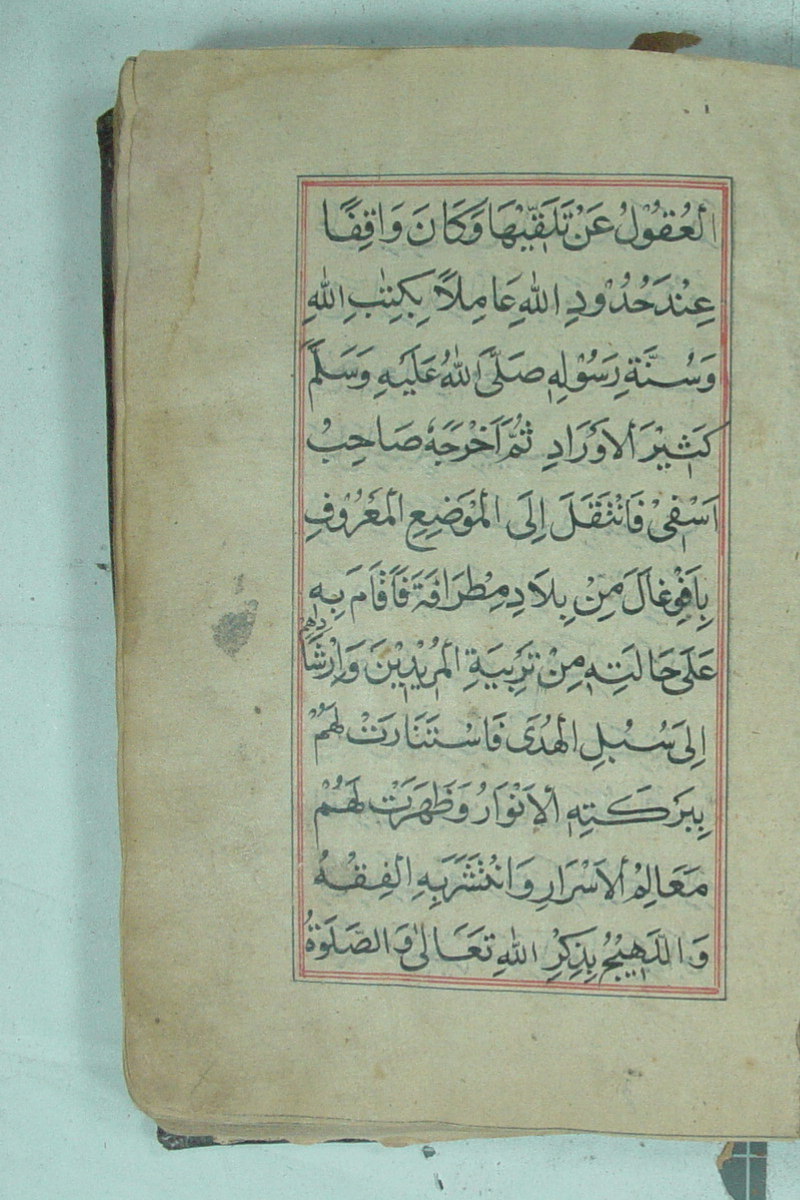 اَلْعُقُوْلُ عَنْ تَلَقِّيْهَا وَكَانَ وَاقِفًا
عِنْدَ حُدُوْدِ اللهِ عَامِلاً بِكِتٰبِ اللهِ
وَسُنَّةِ رَسُوْلِهٖ صَلَّى اللهُ عَلَيْهِ وَسَلَّمَ
كَثِيْرَ اْلاَوْرَادِ ثُمَّ اَخْرَجَهٗ صَاحِبُ
اَسْفِيْ فَانْتَقَلَ اِلَى الْمَوْضِعِ الْمَعْرُوْفِ
بِاَفُوْغَالَ مِنْ بِلاَدِ مِطْرَازَةَ فَاَقَامَ بِهٖ
عَلَى حَالَتِهٖ مِنْ تَرْبِيَةِ الْمُرِيْدِيْنَ وَاِرْشَادِهِمْ
اِلَى سُبُلِ الْهُدَى فَاسْتَنَارَتْ لَهُمْ
بِبَرَكَتِهِ اْلاَنْوَارُ وَظَهَرَتْ لَهُمْ
مَعَالِمُ اْلاَسْرَارِ وَانْتَشَرَ بِهِ الْفِقْهُ
وَاللَّهِيْجُ بِذِكْرِ اللهِ تَعَالىٰ وَالصَّلَوٰةُ